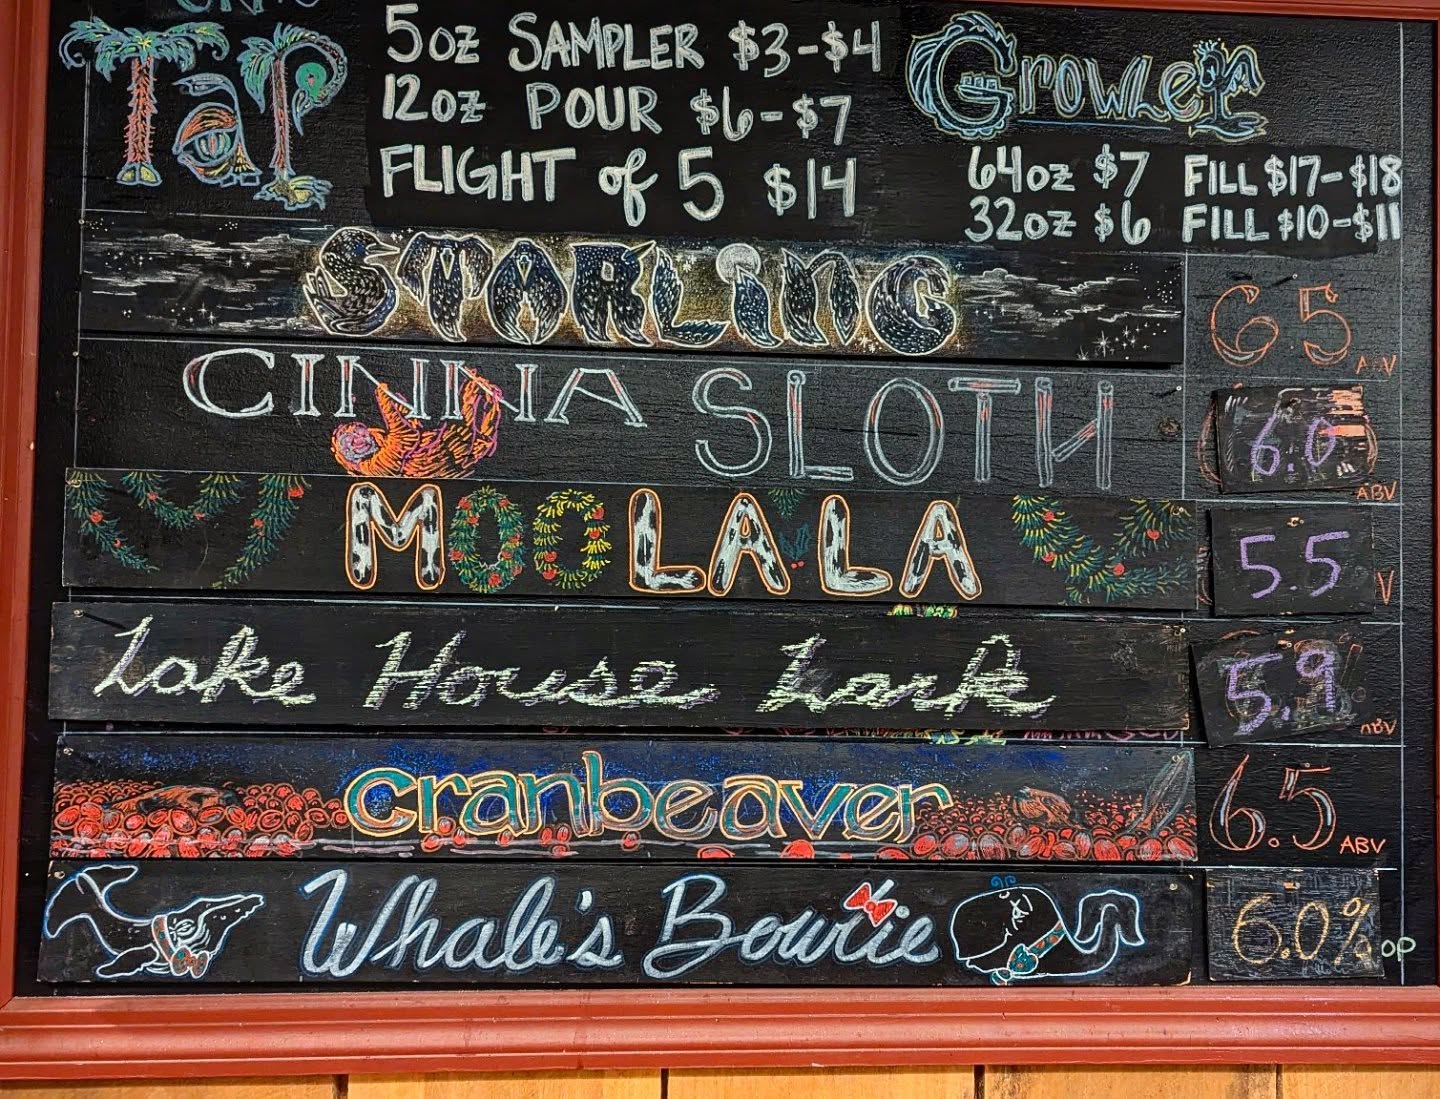 TaP
5oz SAMPLER $3-$4
12oz POUR $6-$7
FLIGHT of 5 $14
Growler
64oz $7 FILL $17-$18
32oz $6 FILL $10-$11
STARLiNG 6.5 ABV
CINNA SLOTH 6.0 ABV
MOOLALA 5.5 V
Lake House Lark 5.9 ABV
cranbeaver 6.5 ABV
Whale's Bowtie 6.0% OP